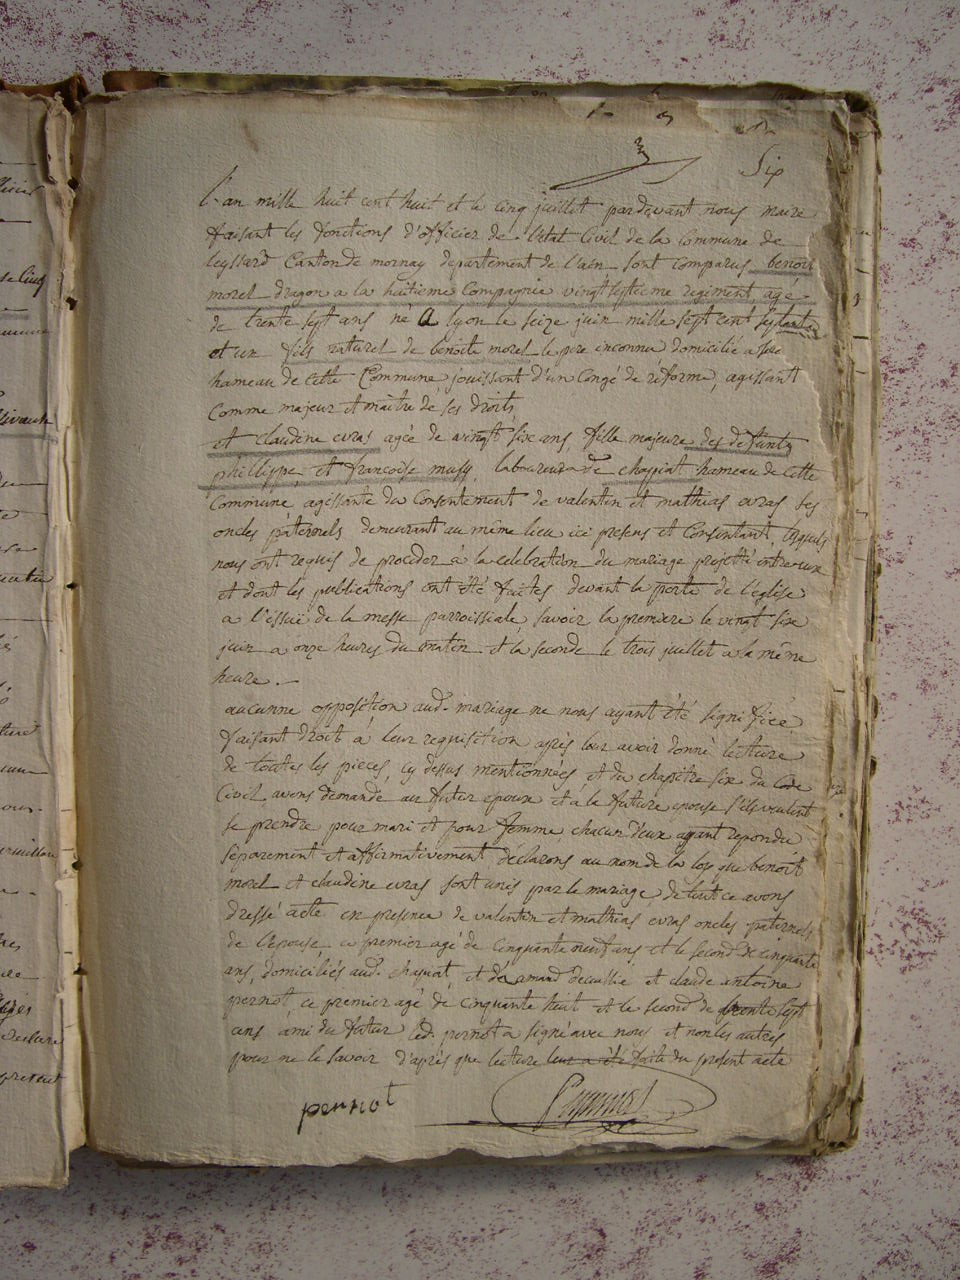 Six
L'an mille huit cent huit et le cinq juillet pardevant nous maire
faisant les fonctions d'officier de l'état Civil de la Commune de
leyssard Canton de mornay departement de l'ain sont comparus benoit
morel dragon a la huitieme Compagnie vingt septieme regiment, agé
de trente sept ans né A lyon le seize juin mille sept cent septante
et un fils naturel de benoite morel le pere inconnu domicilié a
hameau de cette Commune, jouissant d'un Congé de réforme, agissant
Comme majeur et maitre de ses droits,
et claudine evras agée de vingt six ans, fille majeure des defunts
phillippe, et francoise mussy, laboureurs de chappiat hameau de cette
Commune, agissante du Consentement de valentin et mathias evras ses
oncles paternels, demeurant au même lieu ici presens et Consentant, lesquels
nous ont requis de proceder à la celebration du mariage projetté entreeux
et dont les publications ont été faites devant la porte de l'église
a l'essüe de la messe parroissiale, savoir la premiere le vingt six
juin a onze heures du matin et la seconde le trois juillet a la même
heure. —
aucunne opposition aud. mariage ne nous ayant été signifiée
faisant droit à leur requisition après leur avoir donné lecture
de toutes les pieces, cy dessus mentionnées et du chapitre six du Code
Civil, avons demandé au futur epoux et à la future epouse s'ils veulent
se prendre pour mari et pour femme, chacun d'eux ayant repondu
séparement et affirmativement déclarons au nom de la loy que benoit
morel et claudine evras sont unis par le mariage, de tout ce avons
dressé acte en presence de valentin et mathias evras oncles paternels
de l'épouse, ce premier agé de cinquante neuf ans et le second de cinquante
ans, domiciliés aud. chapiat, et de amand et claude antoine
pernot, ce premier agé de cinquante huit et le second de trente sept
ans ami du futur led. pernot a signé avec nous et non les autres
pour ne le savoir d'après que lecture leur a été faite du present acte
pernot